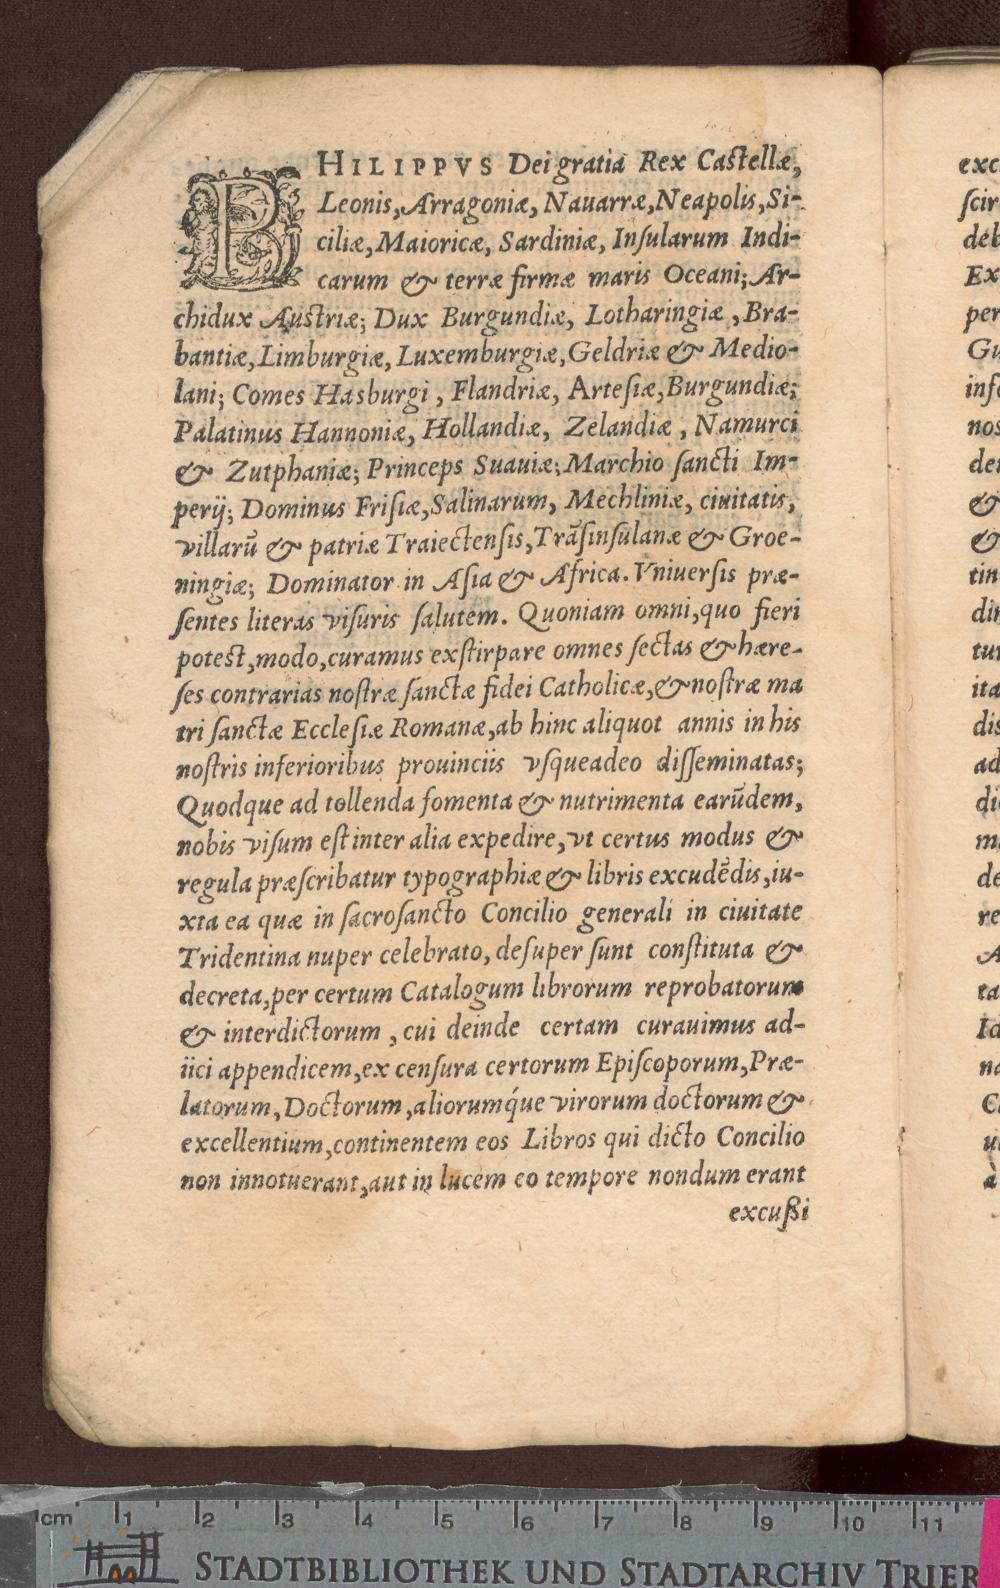 PHILIPPVS Dei gratia Rex Castellæ,
Leonis, Arragoniæ, Nauarræ, Neapolis, Si-
ciliæ, Maioricæ, Sardiniæ, Inſularum Indi-
carum & terræ firmæ maris Oceani; Ar-
chidux Austriæ; Dux Burgundiæ, Lotharingiæ, Bra-
bantiæ, Limburgiæ, Luxemburgiæ, Geldriæ & Medio-
lani; Comes Hasburgi, Flandriæ, Arteſiæ, Burgundiæ;
Palatinus Hannoniæ, Hollandiæ, Zelandiæ, Namurci
& Zutphaniæ; Princeps Suauiæ; Marchio ſancti Im-
perij; Dominus Friſiæ, Salinarum, Mechliniæ, ciuitatis,
villarū & patriæ Traiectenſis, Trāſinſulanæ & Groe-
ningiæ; Dominator in Aſia & Africa. Vniuerſis præ-
ſentes literas viſuris ſalutem. Quoniam omni, quo fieri
potest, modo, curamus exſtirpare omnes ſectas & hære-
ſes contrarias noſtræ ſanctæ fidei Catholicæ, & noſtræ ma
tri ſanctæ Eccleſiæ Romanæ, ab hinc aliquot annis in his
noſtris inferioribus prouinciis vſqueadeo diſſeminatas;
Quodque ad tollenda fomenta & nutrimenta earūdem,
nobis viſum eſt inter alia expedire, vt certus modus &
regula præſcribatur typographiæ & libris excudēdis, iu-
xta ea quæ in ſacroſancto Concilio generali in ciuitate
Tridentina nuper celebrato, deſuper ſunt conſtituta &
decreta, per certum Catalogum librorum reprobatorum
& interdictorum, cui deinde certam curauimus ad-
iici appendicem, ex cenſura certorum Epiſcoporum, Præ-
latorum, Doctorum, aliorumq́ue virorum doctorum &
excellentium, continentem eos Libros qui dicto Concilio
non innotuerant, aut in lucem eo tempore nondum erant
excuſsi
exc
ſcir
deb
Ex
per
Gu
infe
nos
den
&
&
tin
din
tur
ita
dis
ad
die
m
de
re
A
ta
Id
na
C
u
à
cm 1 2 3 4 5 6 7 8 9 10 11
STADTBIBLIOTHEK UND STADTARCHIV TRIER